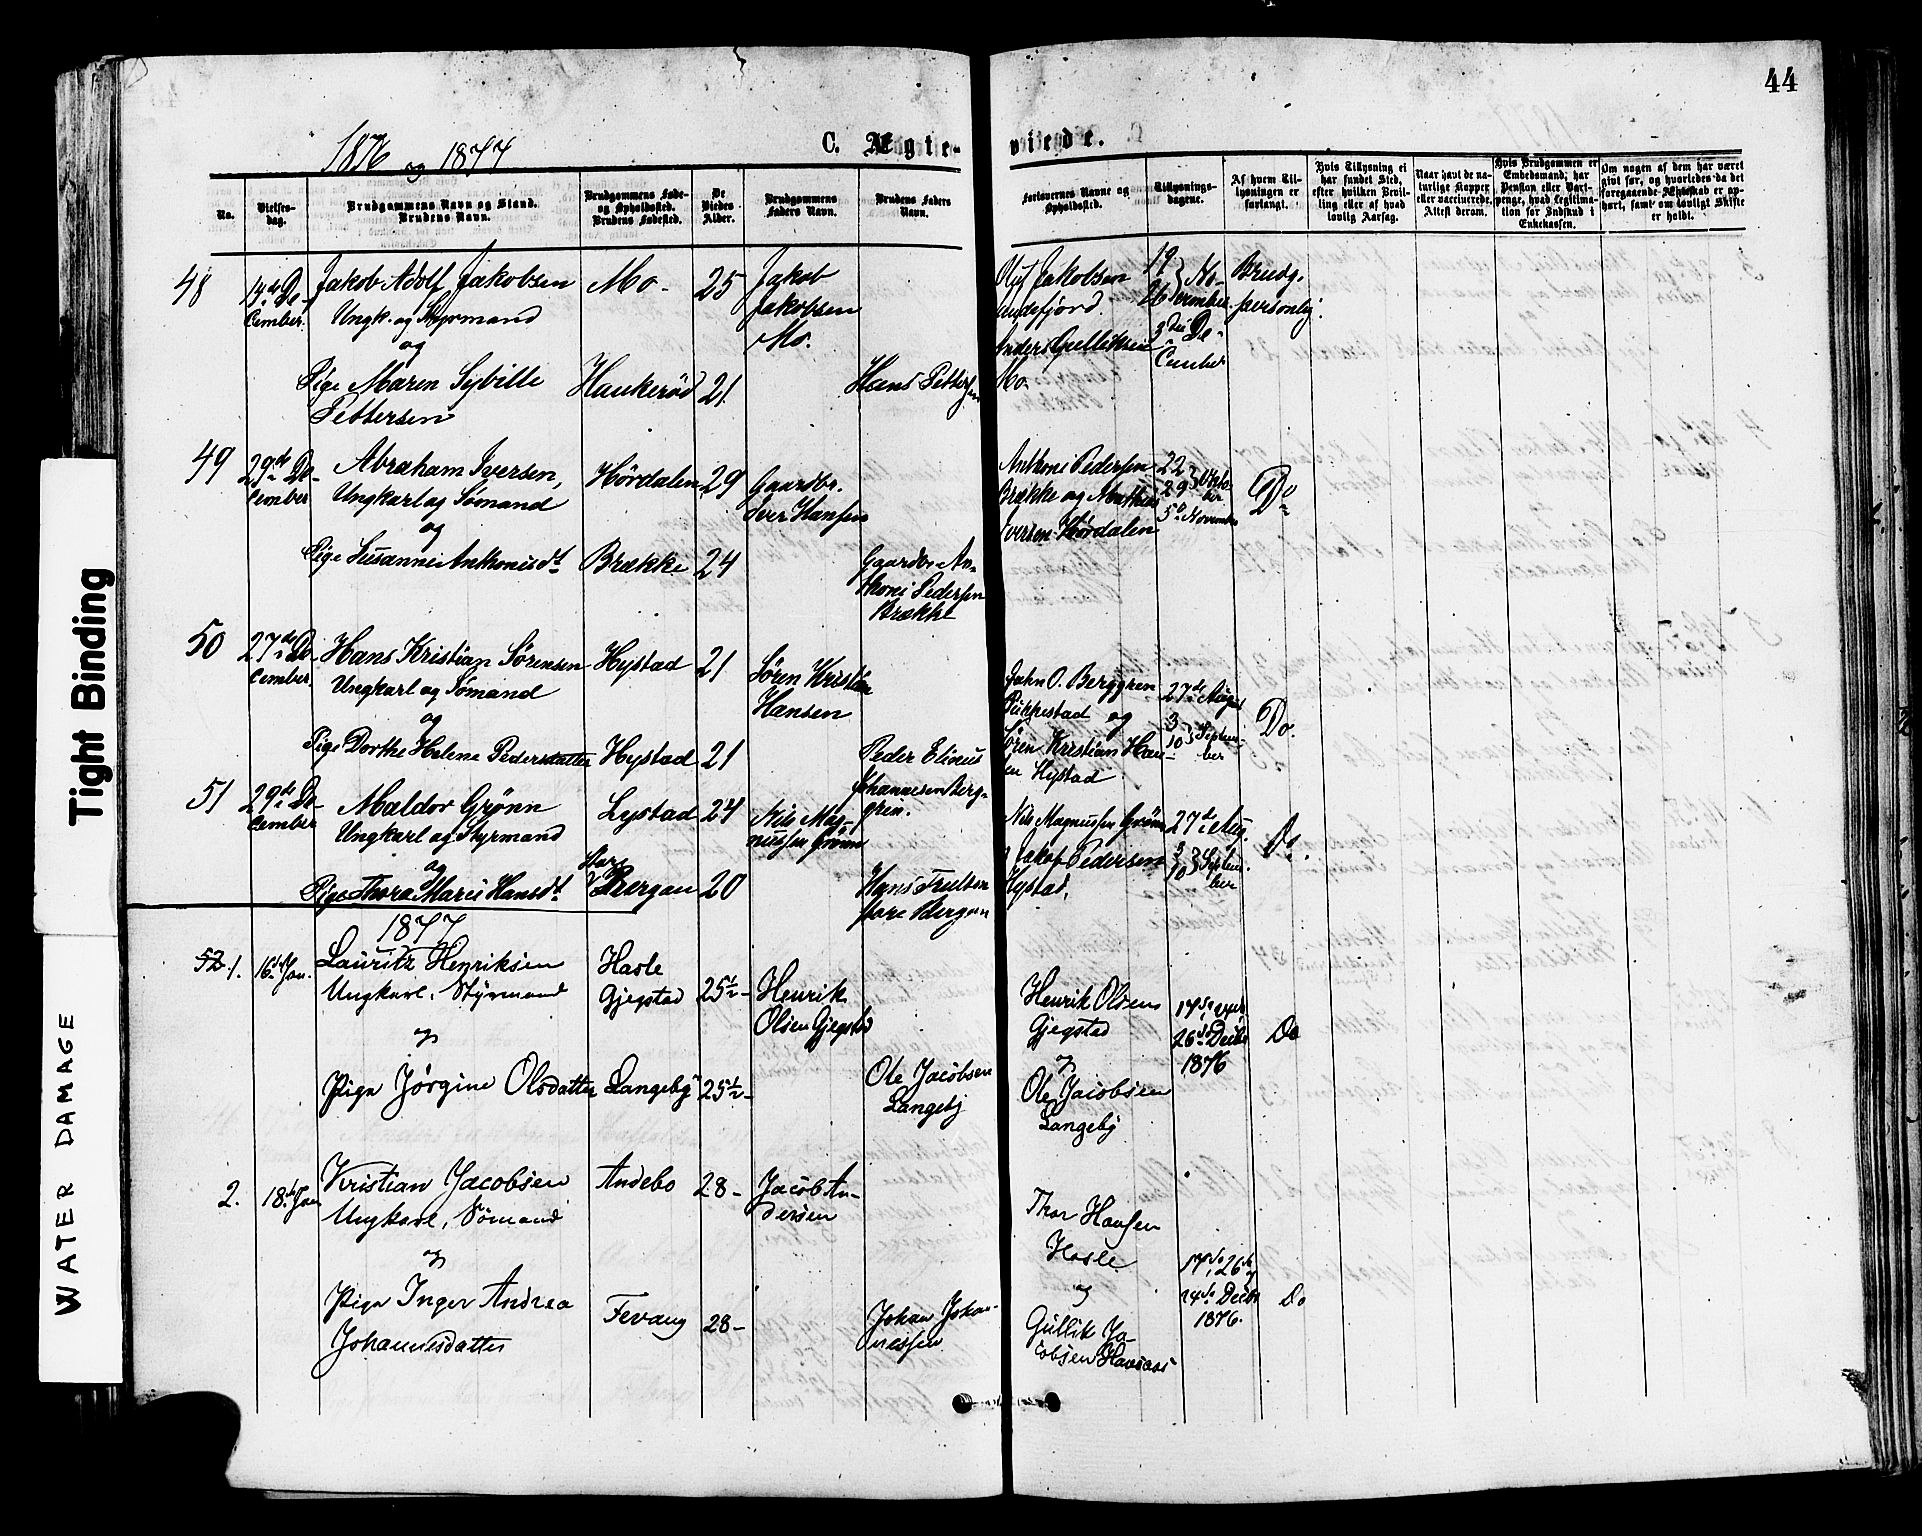 44
1876 og 1877
C. Ægte-
viede.
No.
Vielses-
dag.
Brudgommens Navn og Stand.
Brudens Navn.
Brudgommens Føde-
og Opholdssted.
Brudens Fødested.
De
Viedes
Alder.
Brudgommens
Faders Navn.
Brudens Faders
Navn.
Forlovernes Navne og
Opholdssted.
Tillysnings-
dagene.
Af hvem Til-
lysningen er
forlangt.
Hvis Tillysning ei
har fundet Sted,
efter hvilken Bevil-
ling eller af hvad
lovlig Aarsag.
Naar havt de na-
turlige Kopper
eller vaccinerede.
Attest derom.
Hvis Brudgommen er
Embedsmand, har
Pension eller Vart-
penge, hvad Legitima-
tion for Indskud i
Enkekassen.
Om nogen af dem har været
gift før, og hvorledes da det
foregaaende Ægteskab er op-
hørt, samt om lovligt Skifte
er holdt.
48
14de De-
cember.
Jakob Adolf Jakobsen
Ungk. og Styrmand
og
Pige Maren Sybille
Pettersen
Mo.
Haukerød
25
21
Jakob
Jakobsen
Mo.
Hans Pettersen
Jakobsen
Anders Gulliksen
Mo.
19
26 No-
vember
3die De-
cember
Brudg.
personlig.
49
29de De-
cember
Abraham Iversen,
Ungkarl og Sømand
og
Pige Susanne Anthonisdt
Hørdalen
Brække
29
24
Gaardbr.
Iver Hansen
Gaardbr An-
thoni Pedersen
Brække
Anthoni Pedersen
Brække og Mathias
Iversen Hørdalen
22
29 Okto-
ber
5te November
Do
50
27de De-
cember.
Hans Kristian Sørensen
Ungkarl og Sømand
og
Pige Dorthe Helene Pedersdatter
Hystad
Hystad
21
21
Søren Kristian
Hansen
Peder Elinus
Johannesen Berg-
gren.
John O. Berggren
og
Søren Kristian Han-
sen Hystad
27de August
3
10 Septem-
ber
Do.
51
29de De-
cember
Maldor Grønn
Ungkarl og Styrmand
og
Pige Thora Marie Hansdt
Lystad
Bergan
24
20
Nils Mag-
nussen Grønn
Hans
Bergan
Nils Magnussen Grønn
Jakob Pedersen
Hystad,
27de Aug.
3
10 Septem-
ber
Do.
1877
52 1.
16de Jan.
Lauritz Henriksen
Ungkarl, Styrmand
og
Pige Jørgine Olsdatter
Hasle
Gjegstad
Langeby
25½
25½
Henrik
Olsen Gjegstad
Ole Jacobsen
Langeby
Henrik Olsen
Gjegstad
og
Ole Jacobsen
Langeby
17de, 24de
26de Decbr
1876
Do
2.
18de Jan
Kristian Jacobsen
Ungkarl, Sømand
og
Pige Inger Andrea
Johannesdatter
Andebo
Fevang
28
28
Jacob An-
dersen
Johan Johan-
nesen
Thor Hansen
Hasle
og
Gullik Ja-
cobsen Haasaas
17de, 26de
24de Decbr
1876.
Do
Tight Binding
WATER DAMAGE